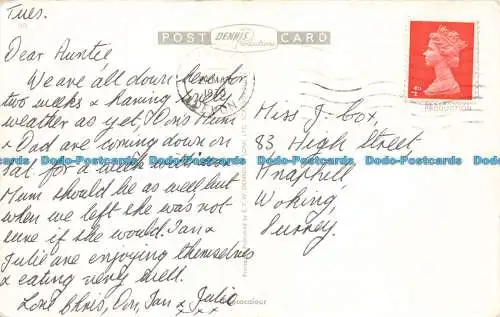 Tues.
POST DENNIS Productions CARD
Dear Auntie
We are all down here for
two weeks & having lovely
weather as yet, Don's Mum
& Dad are coming down on
Sat. for a week with
Mum should be as well, but
when we left she was not
sure if she would. Ian &
Julie are enjoying themselves
& eating very well.
Love Chris, Don, Ian & Julie
x x x
1970
4D
Miss J. Cox,
83 High Street,
Knaphill,
Woking,
Surrey.
Dodo-Postcards Dodo-Postcards Dodo-Postcards Dodo-Postcards Dodo-Postcards
Photocolour